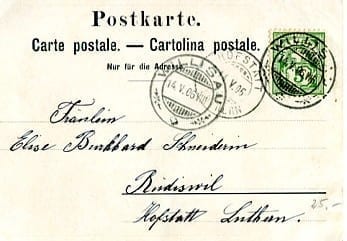 Postkarte.
Carte postale. — Cartolina postale.
Nur für die Adresse.
WILLISAU
14.V.06.VIII
HOFSTATT
V.06
WILLISAU
14.V.06
Fräulein
Elise Burkhard Schneiderin
Rüdiswil
Hofstatt Luthern.
25.-